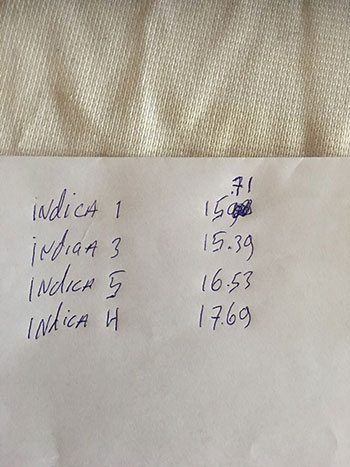 .71
INDICA 1 15
INDIGA 3 15.39
INDICA 5 16.53
INDICA 4 17.69